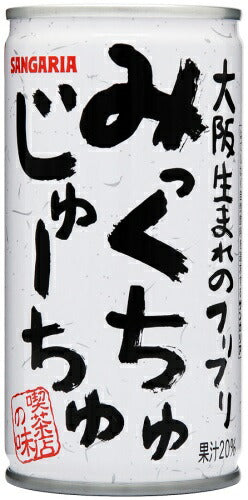 SANGARIA
大阪生まれのフリフリ
みっくちゅ
じゅーちゅ
喫茶店
の味
果汁20%